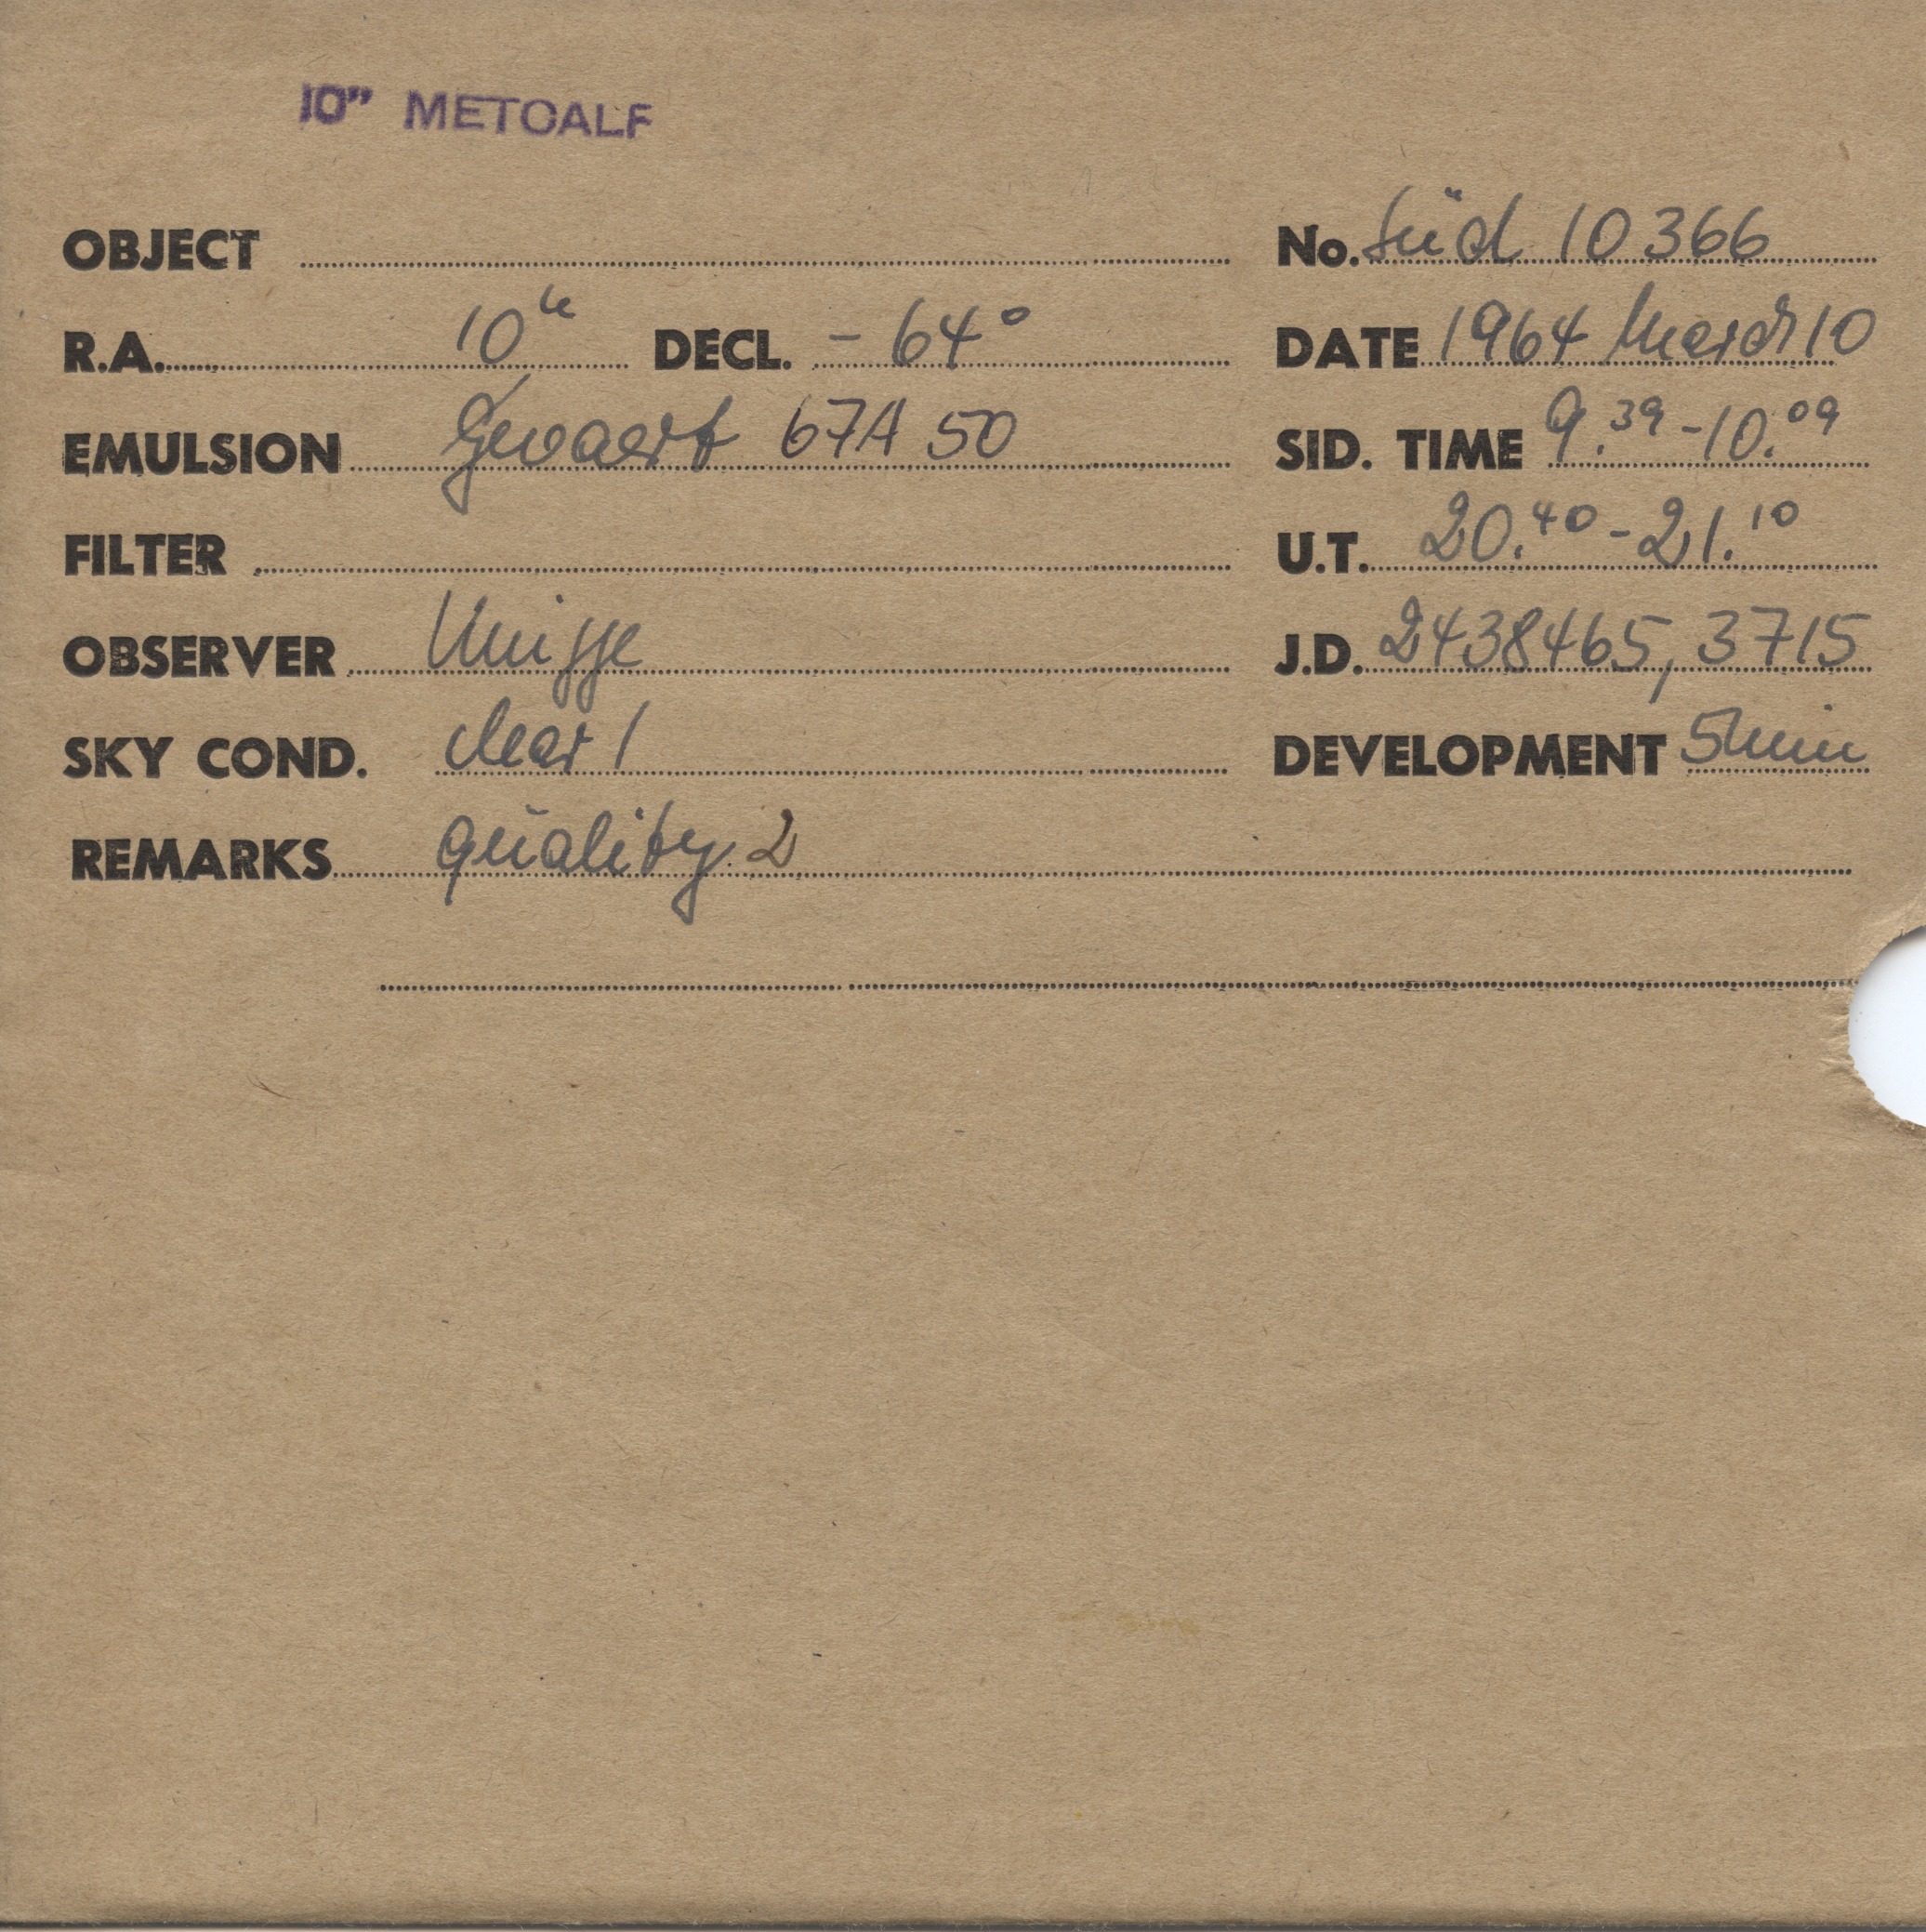 10" METCALF
OBJECT No. Süd 10366
R.A. 10h DECL. - 64° DATE 1964 March 10
EMULSION Gevaert 67A 50 SID. TIME 9.39 - 10.09
FILTER U.T. 20.40 - 21.10
OBSERVER J.D. 2438465,3715
SKY COND. clear 1 DEVELOPMENT 5min
REMARKS quality 2